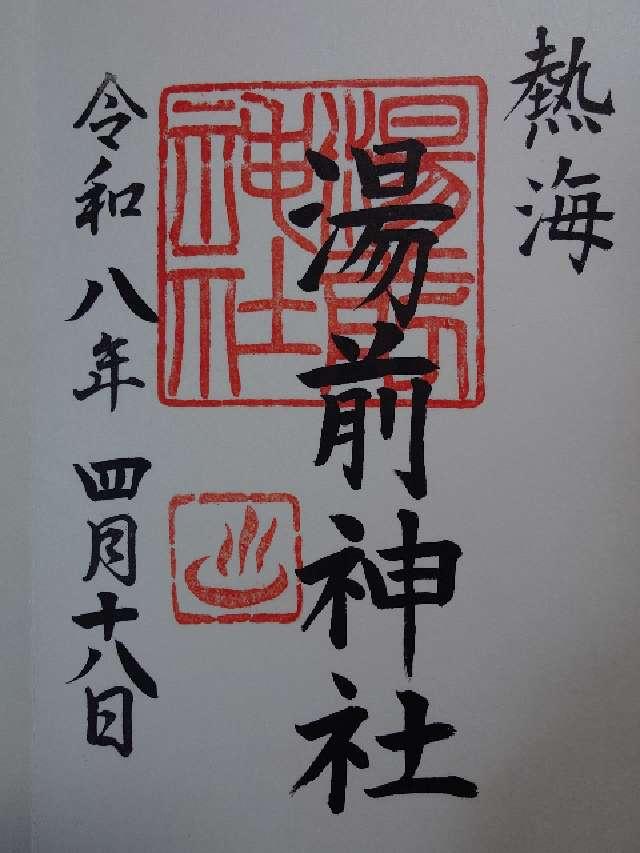 熱海
湯前神社
湯前
神社
令和八年 四月十八日